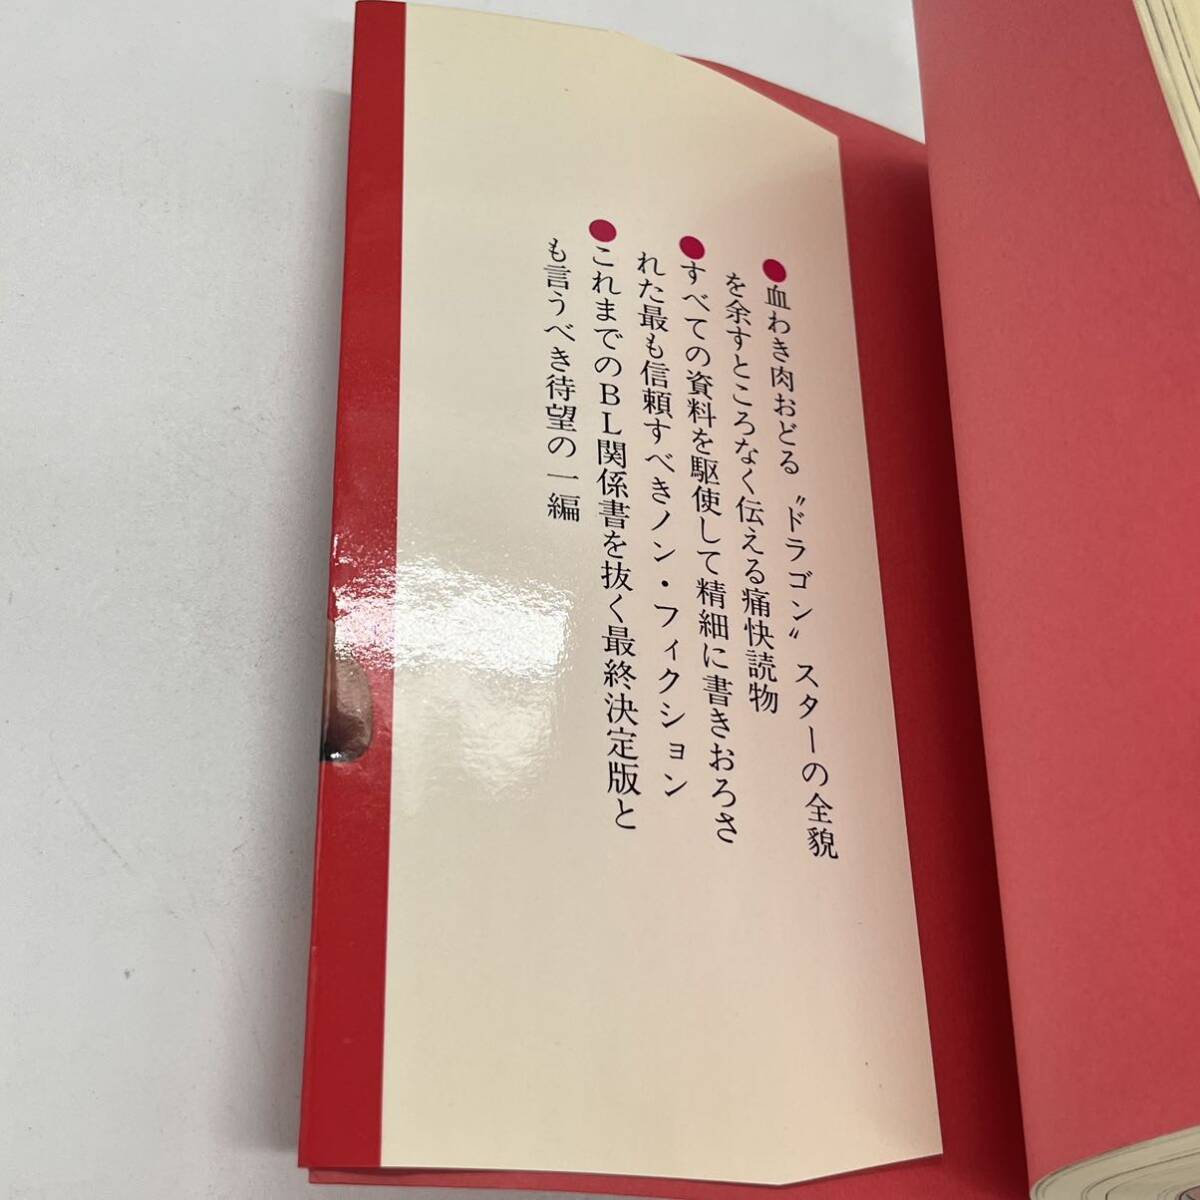 ●血わき肉おどる〝ドラゴン〟スターの全貌
を余すところなく伝える痛快読物
●すべての資料を駆使して精細に書きおろさ
れた最も信頼すべきノン・フィクション
●これまでのBL関係書を抜く最終決定版と
も言うべき待望の一編